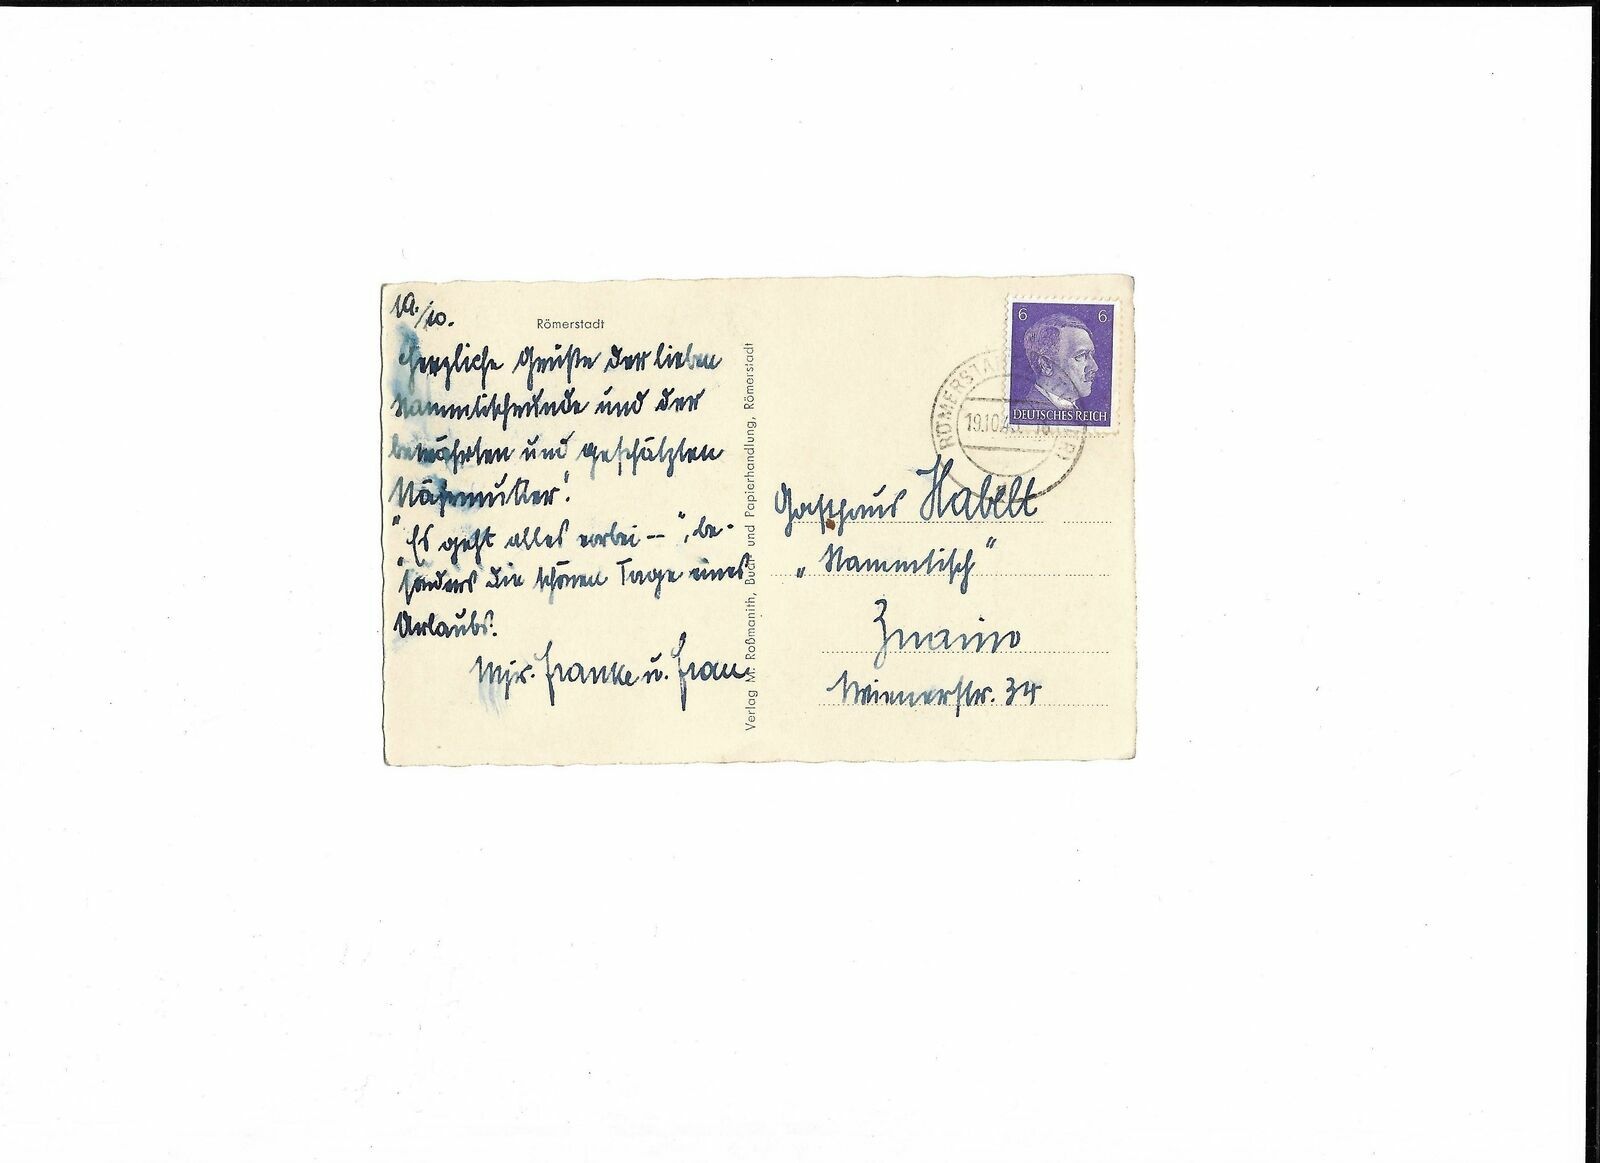 19./10.
Römerstadt
Herzliche Grüße der lieben
Stammtischrunde und der
bewährten und geschätzten
"Es geht alles vorbei — ", be-
sonders die schönen Tage eines
Urlaubs.
Mjr. Franke u. Frau.
Verlag M. Roßmanith, Buch- und Papierhandlung, Römerstadt
6 6
DEUTSCHES REICH
RÖMERSTADT
19.10.43
Gasthaus Habelt
„Stammtisch"
Znaim
Wienerstr. 34